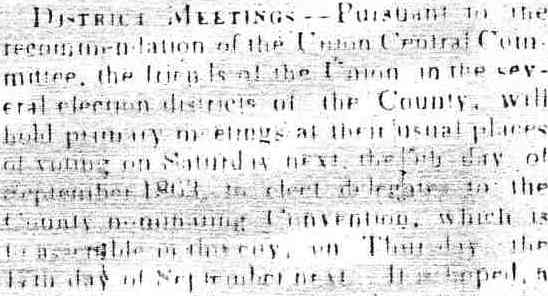 DISTRICT MEETINGS--Pursuant to the
recommendation of the Union Central Com-
mittee, the friends of the Union in the sev-
eral election districts of the County, will
hold primary meetings at their usual places
of voting on Saturday next, the 5th day of
September 1863, to elect delegates to the
County nominating Convention, which is
to assemble in this city, on Thursday the
day of September next. It is hoped, a